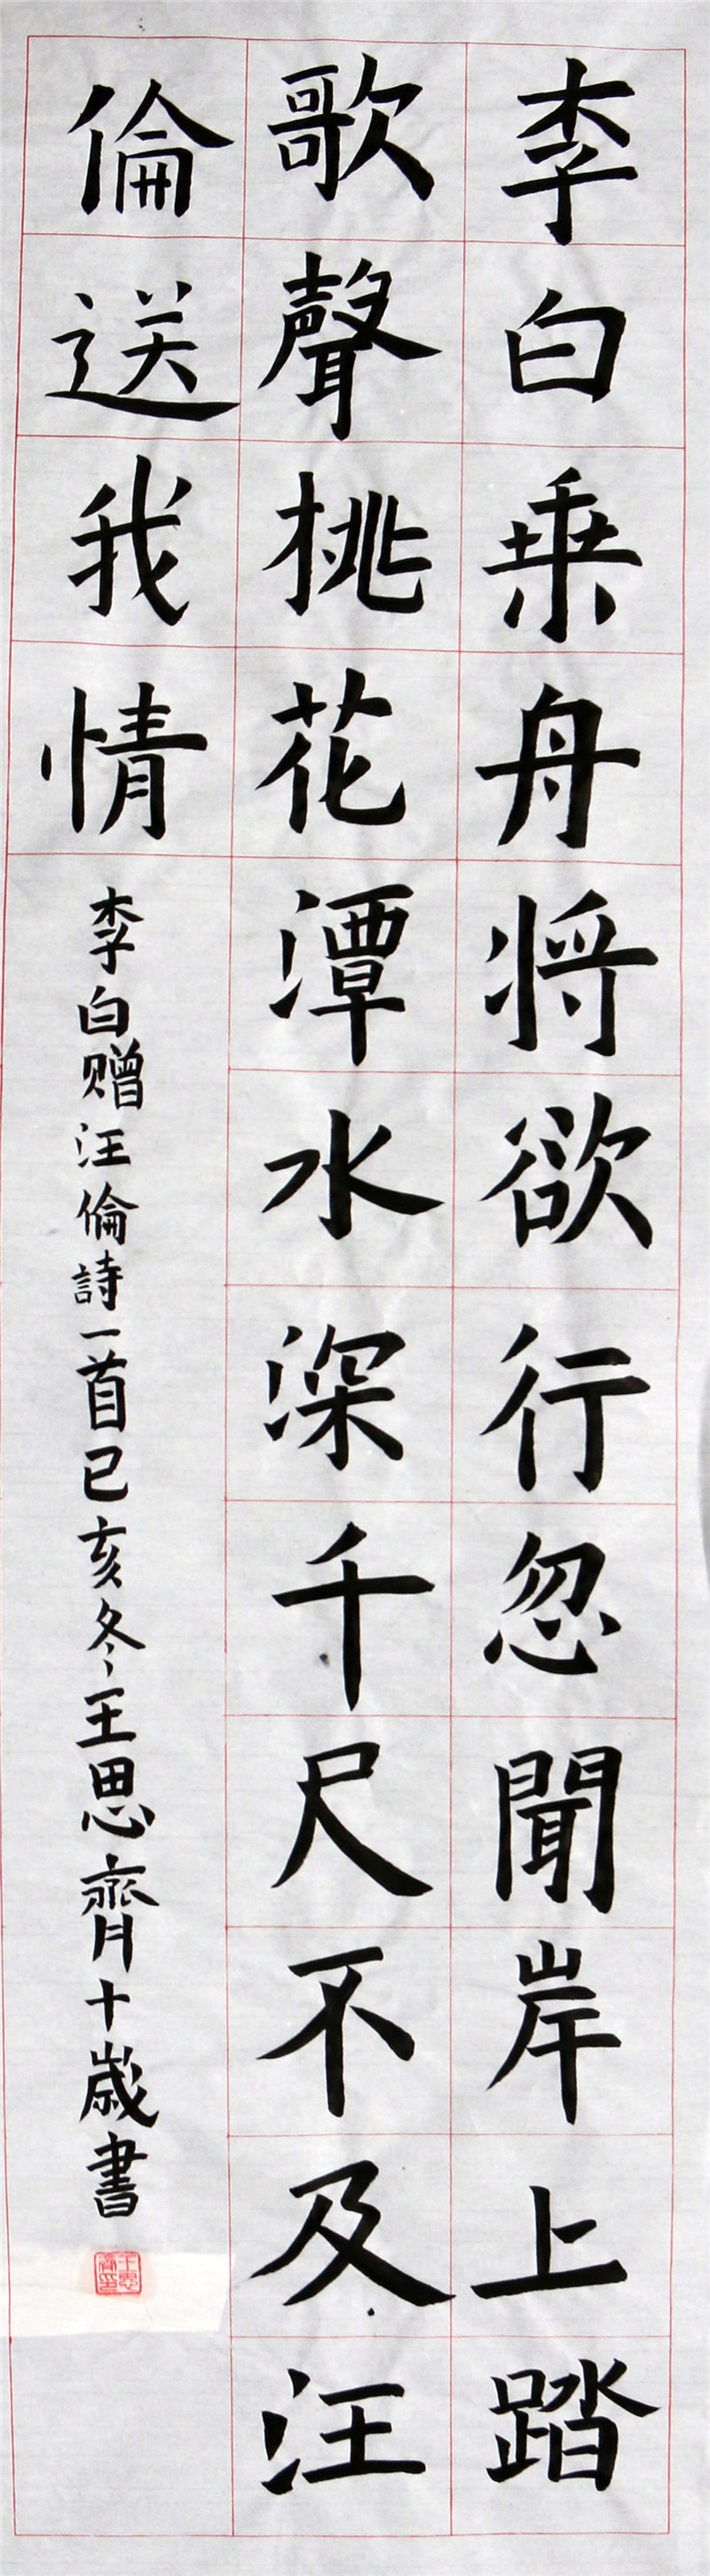 李白乗舟将欲行忽聞岸上踏
歌聲桃花潭水深千尺不及汪
倫送我情
李白赠汪倫詩一首己亥冬王思齊十歲書